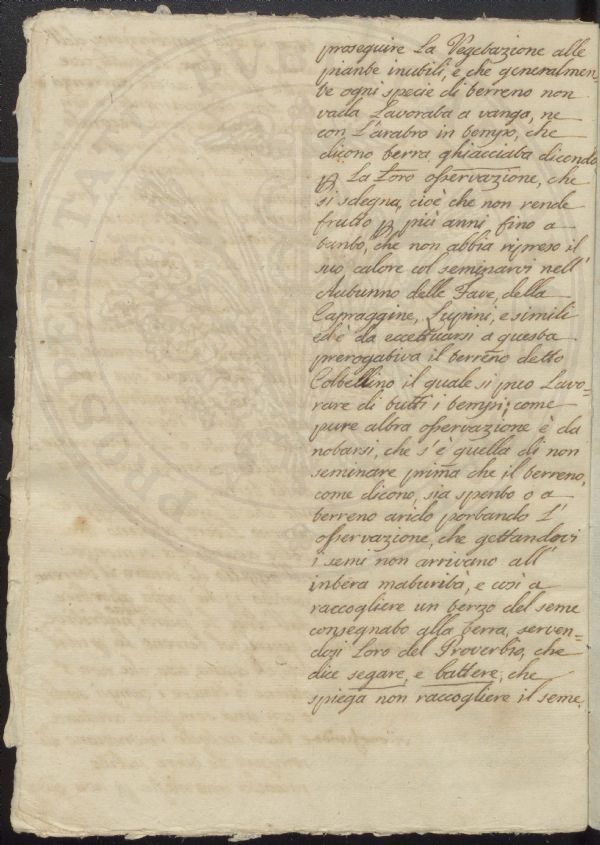 proseguire La Vegetazione alle
piante inutili, e che generalmen-
te ogni specie di terreno non
vada Lavorata a vanga, ne
con L'aratro in tempo, che
dicono terra ghiacciata dicendo
p La Loro osservazione, che
si sdegna, cioè che non rende
frutto p più anni fino a
tanto, che non abbia ripreso il
suo calore col seminarvi nell'
Autunno delle Fave, della
Capraggine, Lupini, e simili
ed è da eccettuarsi a questa
prerogativa il terreno detto
Colbellino il quale si puo Lavo-
rare di tutti i tempi; come
pure altra osservazione è da
notarsi, che s'è quella di non
seminare prima che il terreno,
come dicono, sia spento o a
terreno arido portando L'
osservazione, che gettandovi
i semi non arrivano all'
intera maturità, e così a
raccogliere un terzo del seme
consegnato alla terra, serven-
dosi Loro del Proverbio, che
dice segare, e battere, che
spiega non raccogliere il seme,